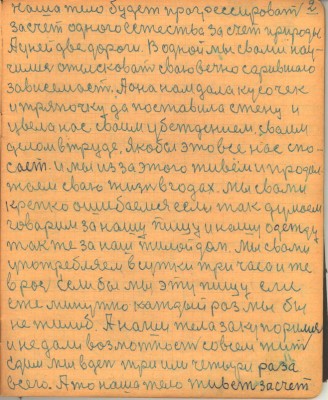 2
наша тело будет прогрессироват
засчет одного естества за счет природы
А у ней две дороги. В одной мы с вами нау
чились отысковат сваю вечно
зависемаст. А она нам дала кусочек
и тряпочку да поставила стену и
увела нас сваим убеждением, сваим
делом в труде, якобы это все нас спо
сает. И мы из за этого живём и продол
жаем сваю жизн в годах. мы с вами
крепко ошибаемся если так думаем
говорим за нашу пищу и нашу одежду
так же за наш жилой дом. Мы с вами
употребляем в сутки три часо и те
в рос если бы мы эту пищу ели
еже минутно каждый раз мы бы
не жили б. А наши тела закупорился
и не дали возможност совсем жит
едим мы в ден три или четыри раза
всего. А то наша тело живет засчет